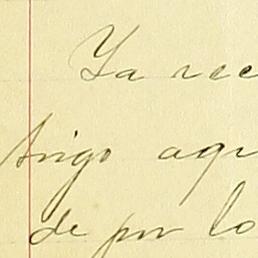 Ya rec
trigo agr
de por lo